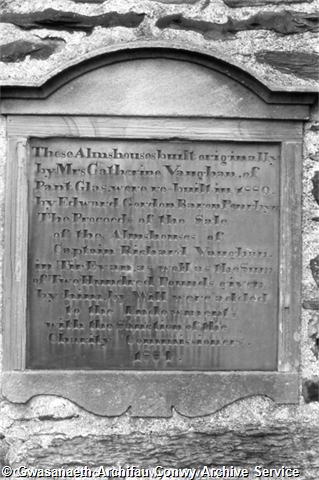 These Almshouses built originally
by Mrs Catherine Vaughan, of
Pant Glas, were re-built in 1889,
by Edward Gordon Baron Penrhyn
The Proceeds of the Sale
of the Almshouses of
Captain Richard Vaughan,
in Tir Evan as well as the Sum
of Two Hundred Pounds given
by him by Will were added
to the Endowment,
with the Sanction of the
Charity Commissioners.
© Gwasanaeth Archifau Conwy Archive Service